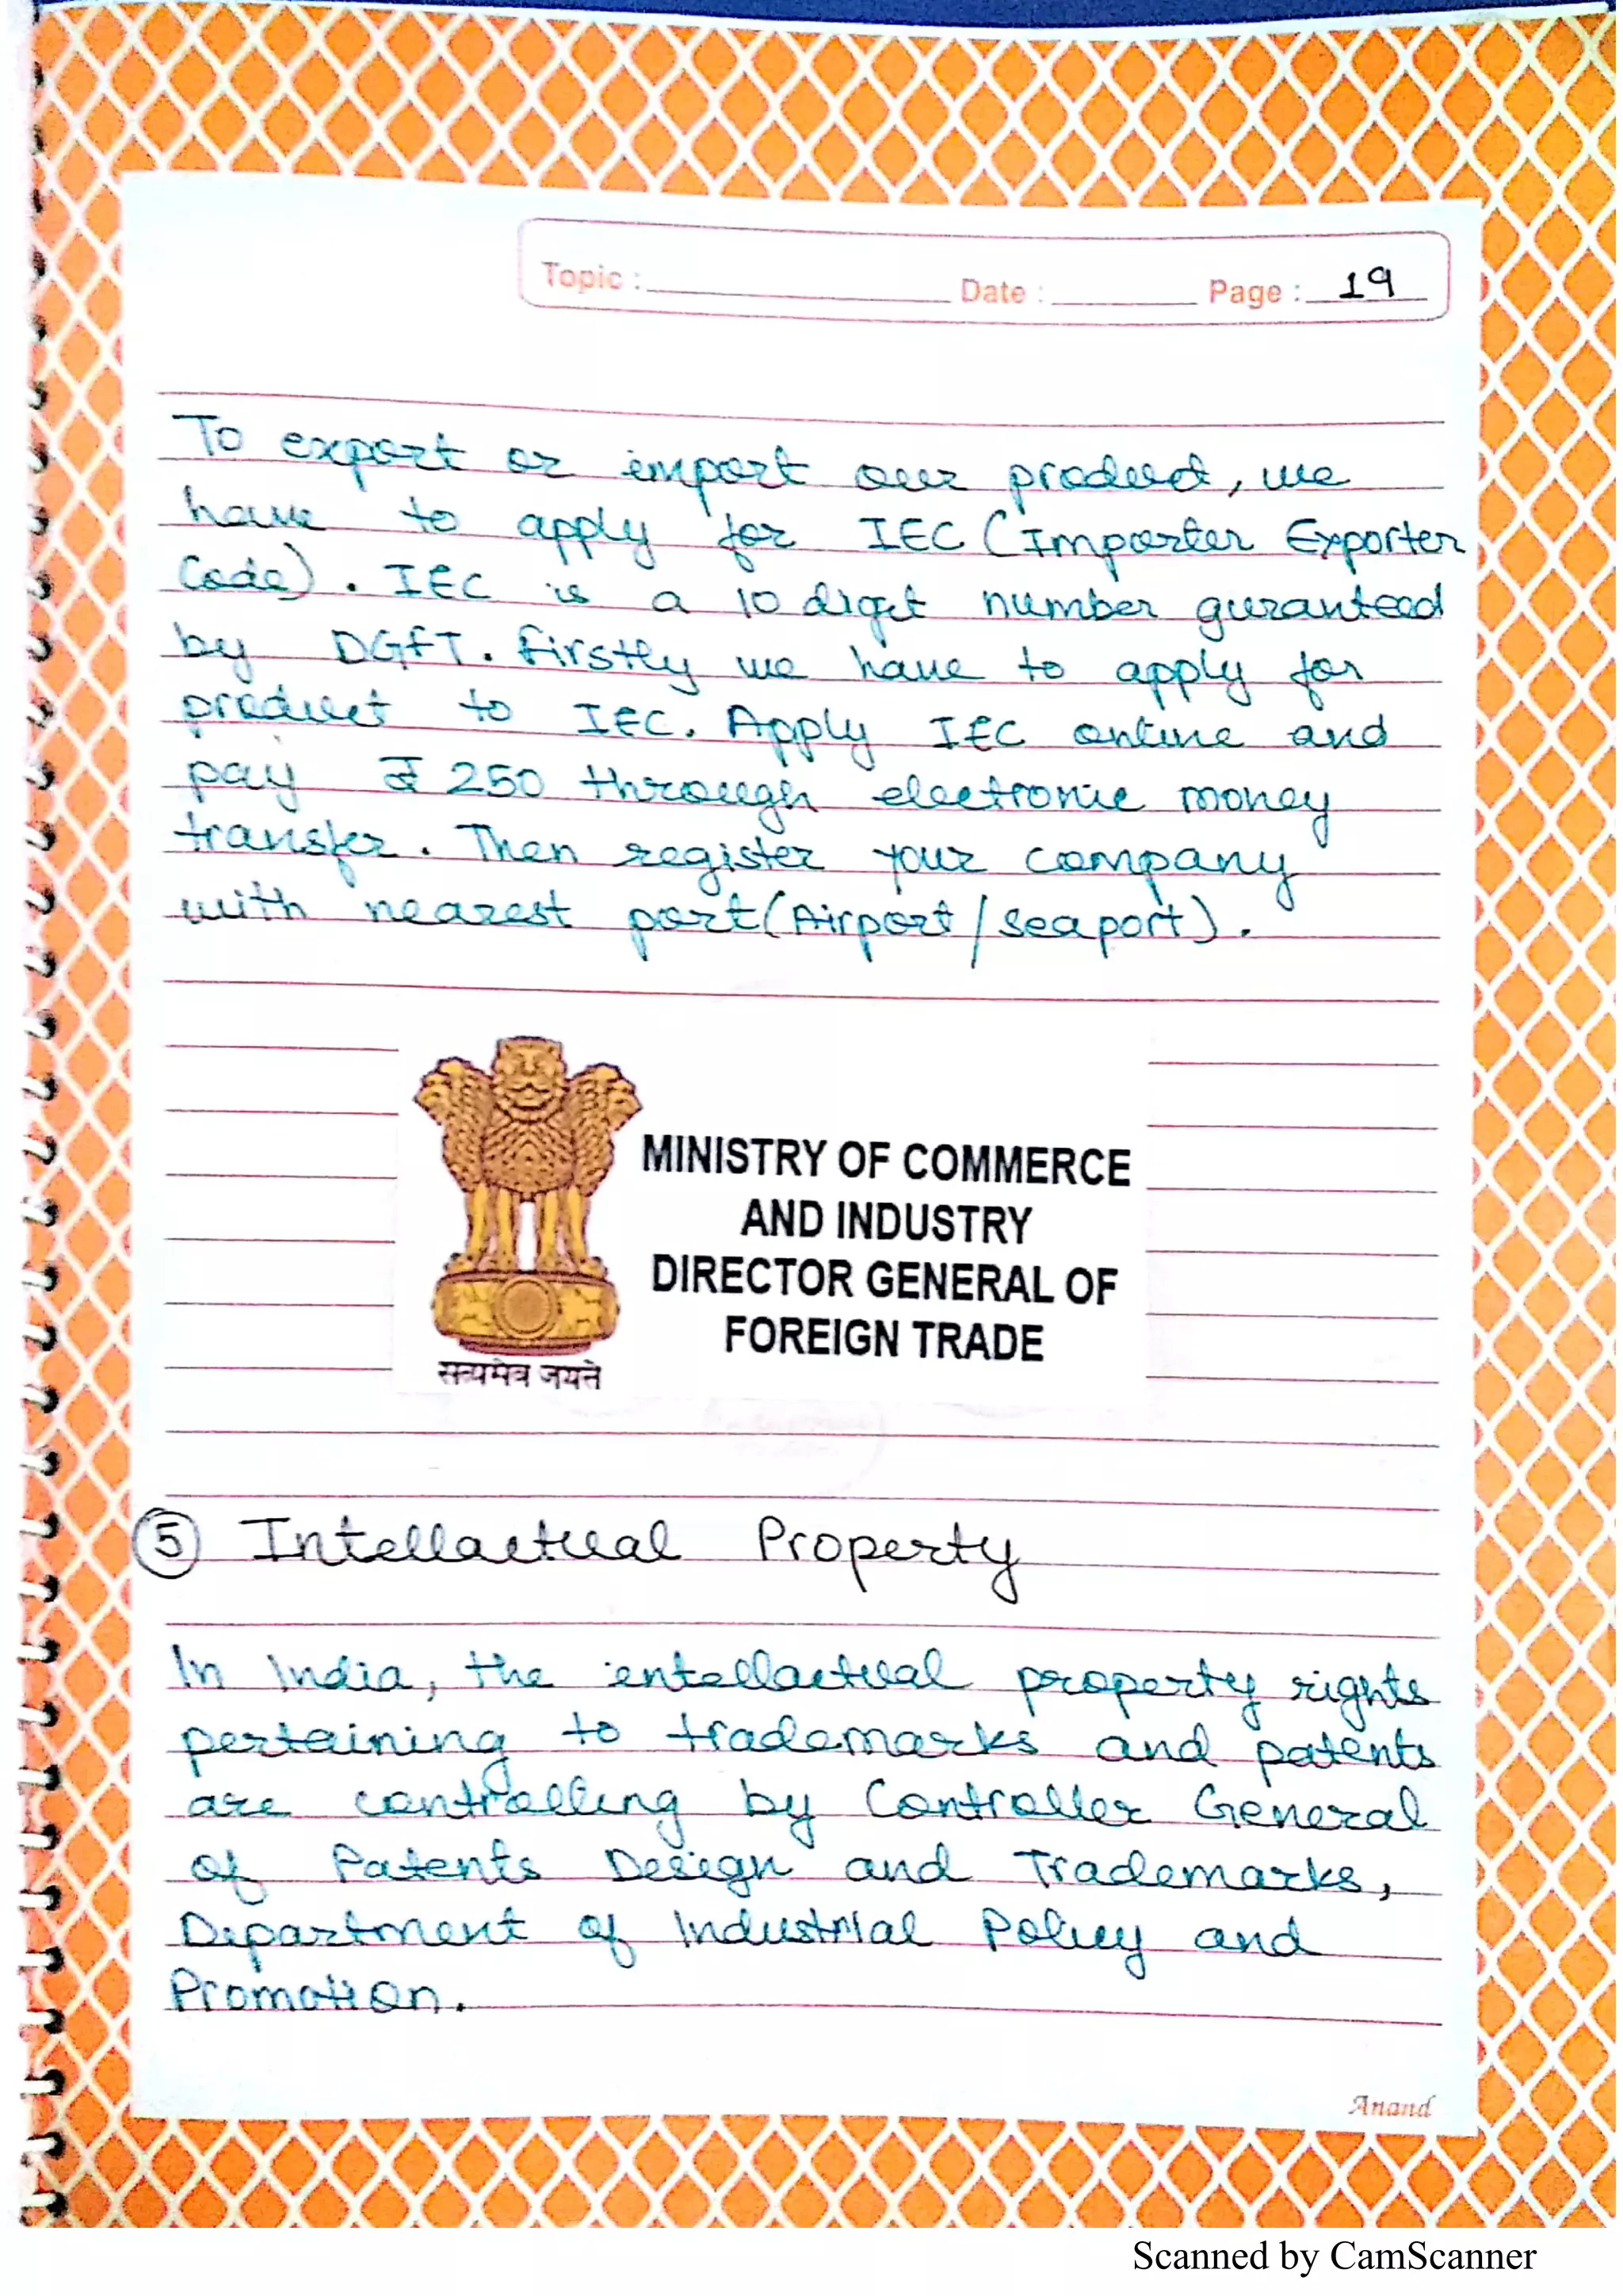 Topic : Date : Page : 19
To export or import our product, we
have to apply for IEC (Importer Exporter
Code). IEC is a 10 digit number guranteed
by DGFT. Firstly we have to apply for
product to IEC. Apply IEC online and
pay ₹ 250 through electronic money
transfer. Then register your company
with nearest port (Airport / seaport).
MINISTRY OF COMMERCE
AND INDUSTRY
DIRECTOR GENERAL OF
FOREIGN TRADE
सत्यमेव जयते
5 Intellactual Property
In India, the intellactual property rights
pertaining to trademarks and patents
are controlling by Controller General
of Patents Design and Trademarks,
Department of Industrial Policy and
Promotion.
Anand
Scanned by CamScanner